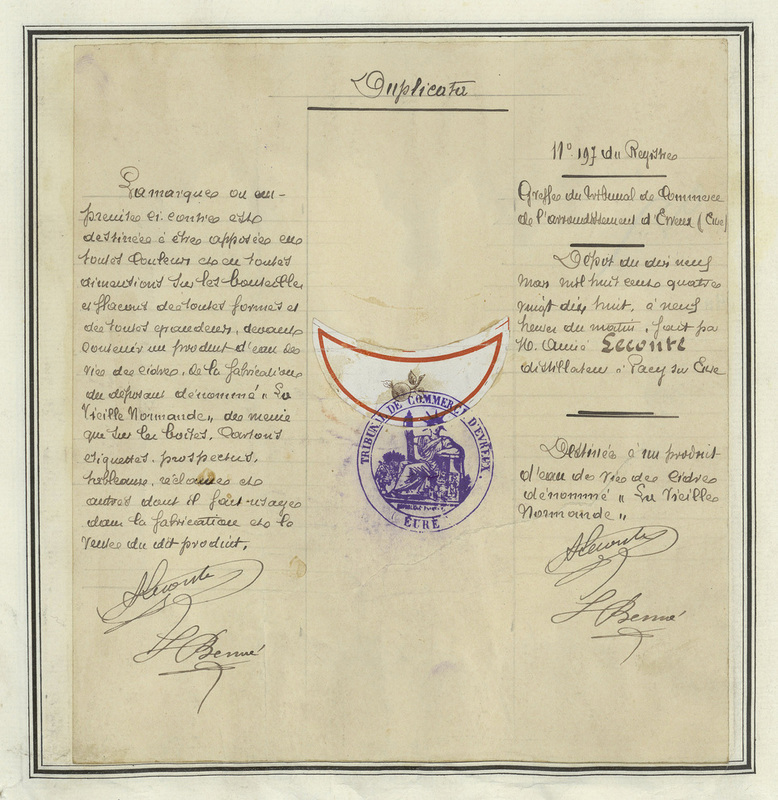 Duplicata
La marque ou em-
preinte ci contre est
destinée à être apposée en
toutes couleurs et en toutes
dimensions sur les bouteilles
et flacons de toutes formes et
de toutes grandeurs, devant
contenir un produit d'eau de
vie de cidre, de la fabrication
du déposant dénommé "La
Vieille Normande" de même
que sur les boîtes, cartons
étiquettes, prospectus,
tableaux, réclames et
autres dont il fait usage
dans la fabrication et la
vente du dit produit.
ALeconte
Benné
TRIBUNAL DE COMMERCE D'EVREUX.
EURE
N° 197 du Registre
Greffe du Tribunal de Commerce
de l'arrondissement d'Evreux (Eure)
Dépôt du dix neuf
mars mil huit cent quatre
vingt dix huit, à neuf
heures du matin, fait par
M. Aimé Leconte
distillateur à Pacy sur Eure
Destinée à un produit
d'eau de vie de cidre
dénommé "La Vieille
Normande"
ALeconte
Benné